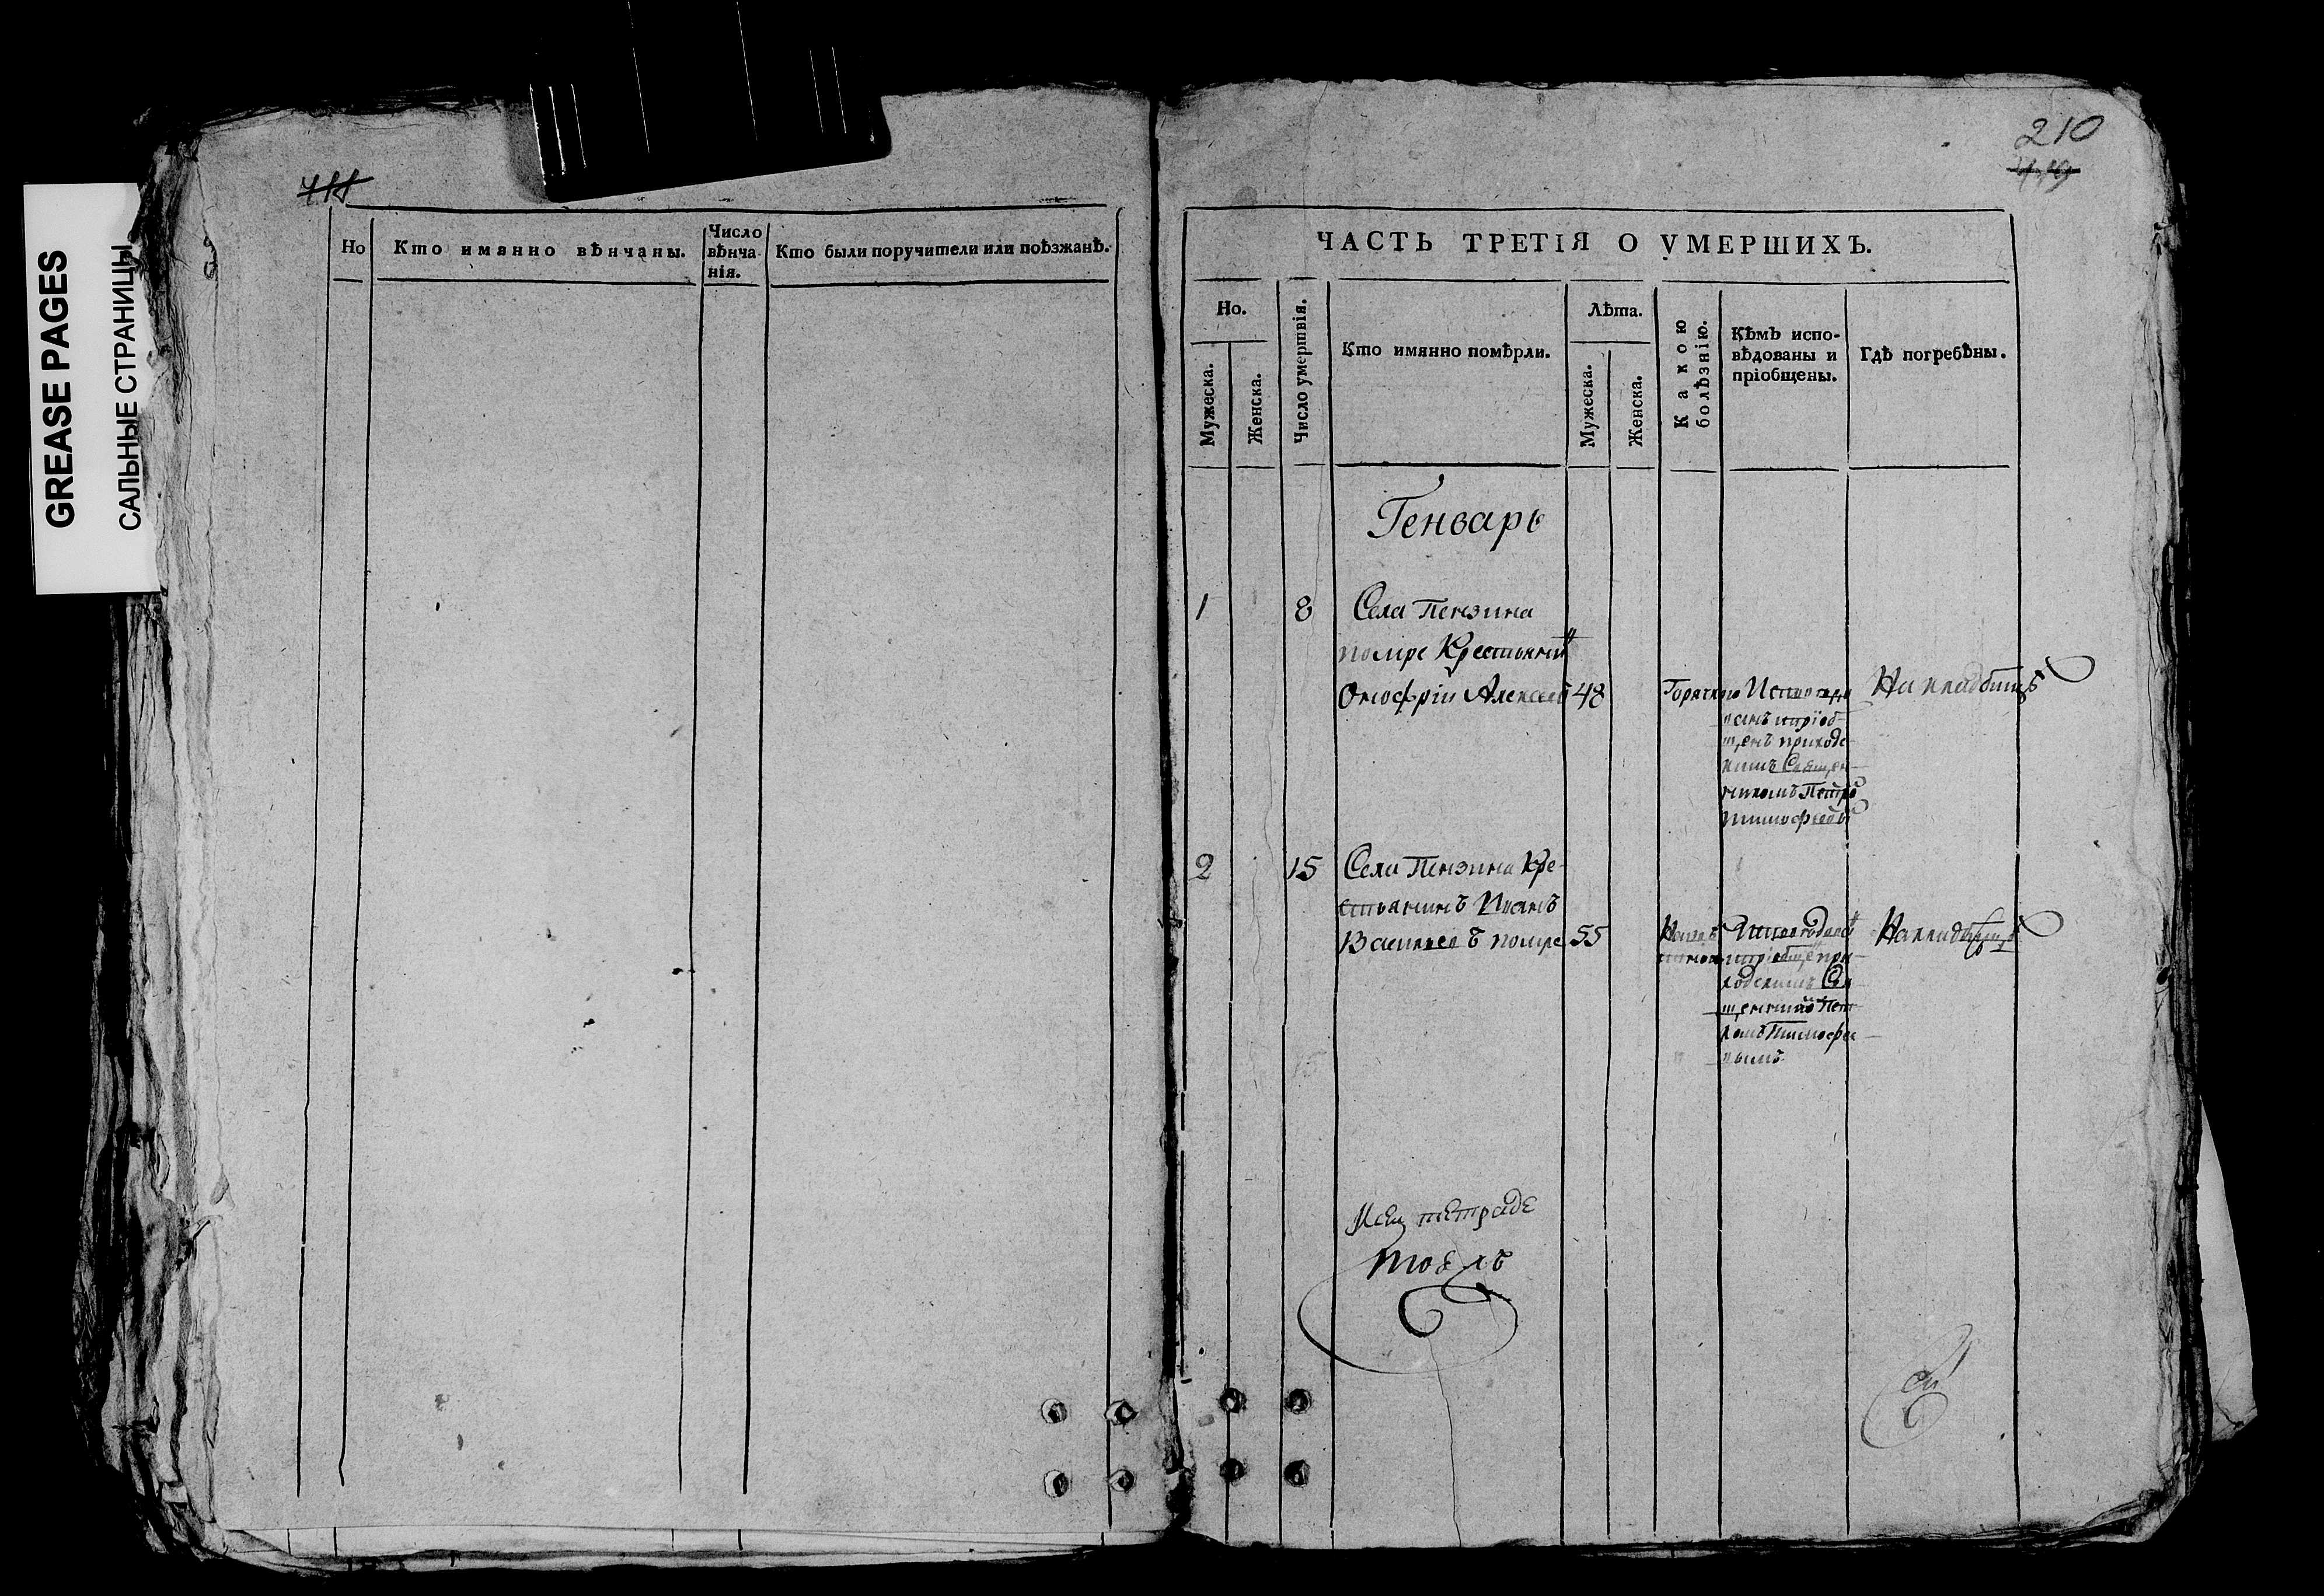 GREASE PAGES
САЛЬНЫЕ СТРАНИЦЫ
Но
Кто имянно вѣнчаны.
Число
вѣнча
нія.
Кто были поручители или поѣзжанѣ.
210
ЧАСТЬ ТРЕТІЯ О УМЕРШИХЪ.
Но.
Мужеска.
Женска.
Число умертвія.
Кто имянно помѣрли.
Лѣта.
Мужеска.
Женска.
Какою
болѣзнію.
Кѣмъ испо-
вѣдованы и
пріобщены.
Гдѣ погребѣны.
Генварь
1 8 Села Пензина
помре Крестьянинъ
Онофріи Алексеевъ 48 Горячкою Исповеда На кладбищѣ
ванъ ипріоб-
щенъ приход-
кимъ Священ-
никомъ Петро
Тимофѣевы
2 15 Села Пензина Кре-
стьянинъ Иванъ
Василевъ помре 55 Исповедованъ На кладбищѣ
ипріобще при-
ходскимъ Свя-
щенникомъ Пет-
ромъ Тимофее-
вымъ